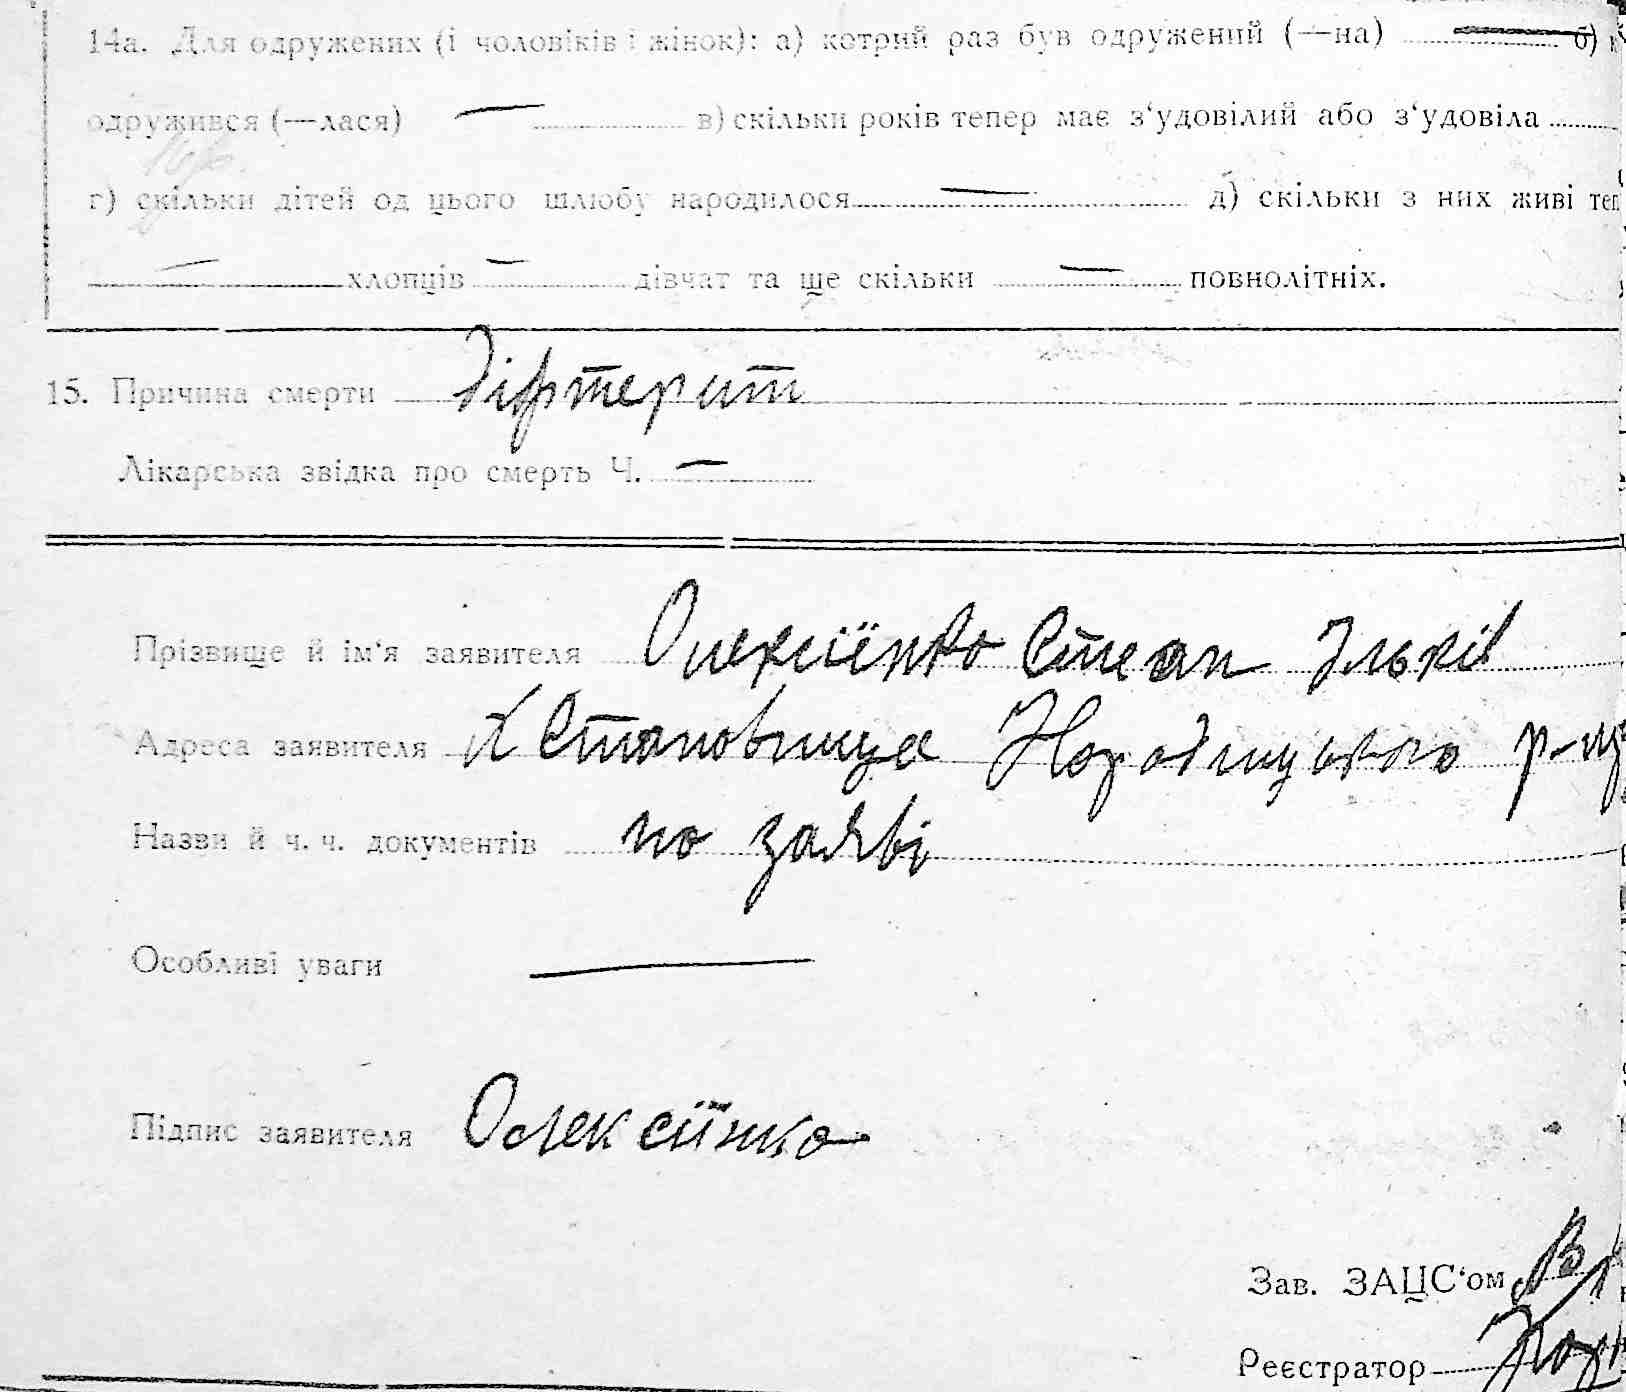 14а. Для одружених (і чоловіків і жінок): а) котрий раз був одружений (—на) — б)
одружився (—лася) — в) скільки років тепер має з‘удовілий або з‘удовіла
г) скільки дітей од цього шлюбу народилося — д) скільки з них живі теп
— хлопців — дівчат та ще скільки — повнолітніх.
15. Причина смерти Діфтерит
Лікарська звідка про смерть Ч. —
Прізвище й ім‘я заявителя Олексіёнко Степан Ільків
Адреса заявителя Становище Народицького р-ну
Назви й ч. ч. документів по заяві
Особливі уваги —
Підпис заявителя Олексіїнко
Зав. ЗАЦС‘ом
Реєстратор